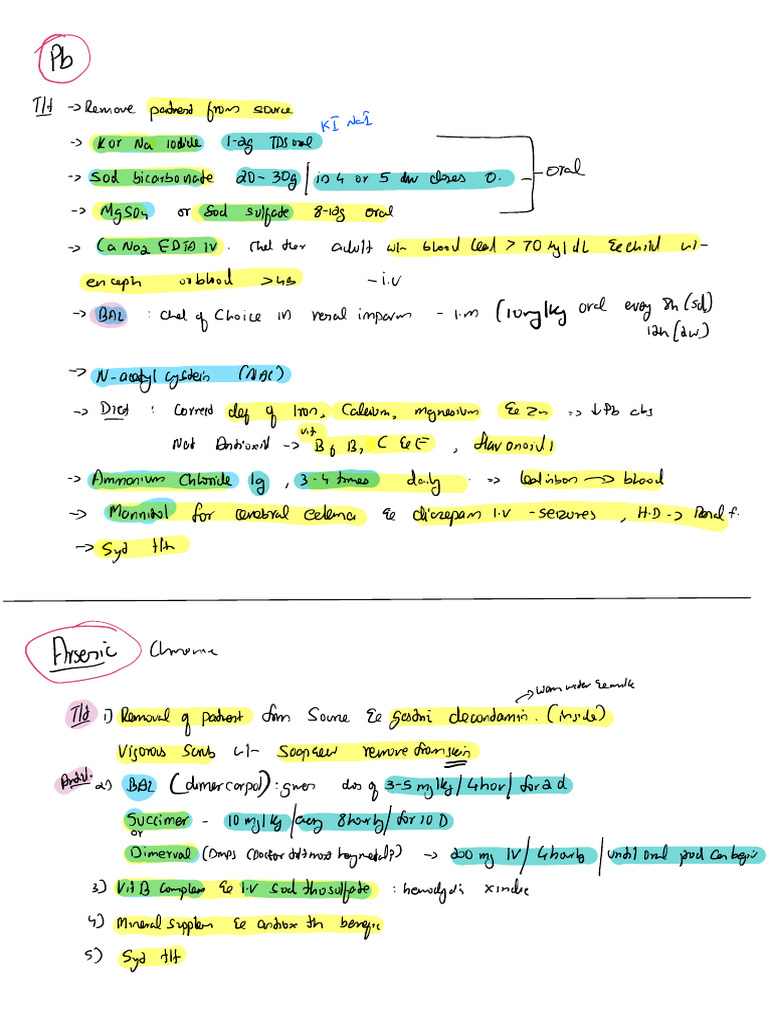 Pb
T/t → Remove patient from source
KI NaI
→ K or Na iodide 1-2g TDS oral
→ Sod bicarbonate 20-30g / in 4 or 5 div doses O.
oral
→ MgSO4 or Sod sulfate 8-12g oral
→ Ca Na2 EDTA IV. Chel ther adult w/- blood lead > 70 Mg/dL & child w/-
enceph or blood >45 - i.v
→ BAL : Chel of Choice in renal imparm - I.m (10mg/kg oral every 8h (5d)
12h (2w)
→ N-acetyl cystein (NAC)
→ Diet : Correct def of Iron, Calcium, magnesium & Zn => ↓Pb abs
Nat Antioxid → vit B6 B1 C & E , flavonoid
→ Ammonium Chloride 1g , 3-4 times daily => lead in bon → blood
→ Mannitol for cerebral edema & diazepam I.V - seizures , H.D → Renal f.
→ Sym t/t
Arsenic Chronic
→ Warm water & milk
T/t 1) Removal of patient from Source & gastric decontamin. (inside)
Vigorous Scrub w/- Soap & w remove from skin
Antid. 2) BAL (dimercaprol) : given dos of 3-5 mg/kg / 4 hour / for 2 d
Succimer - 10 mg/kg / every 8 hourly / for 10 D
or
Dimerval (DMPS → 200 mg IV / 4 hourly / until oral prod can begin
3) Vit B Complex & I.V Sod thiosulfate : hemodyalis x indic
4) Mineral supplem & antiox th benefic
5) Sym t/t